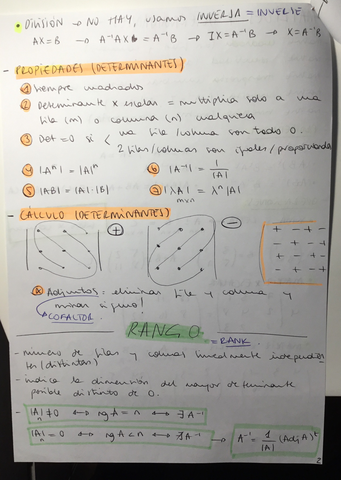 • DIVISIÓN → NO HAY, usamos INVERSA = INVERSE
AX=B → A⁻¹AX = A⁻¹B → IX=A⁻¹B → X=A⁻¹B
- PROPIEDADES (DETERMINANTES)
① Siempre cuadrados
② Determinante x escalar = multiplica solo a una
fila (m) o columna (n) cualquiera
③ Det=0 si < una fila/columna son todo 0.
2 filas/columnas son iguales/proporcionales
④ |Aⁿ| = |A|ⁿ
⑥ |A⁻¹| = 1/|A|
⑤ |AB| = |A|·|B|
⑦ |λA| = λⁿ|A|
mxn
- CÁLCULO (DETERMINANTES)
+
−
+ − + −
− + − +
+ − + −
− + − +
Adjuntos: eliminar fila y columna y
mirar signo!
COFACTOR
RANGO
= RANK
- número de filas y columnas linealmente independien
tes (distintas)
- indica la dimensión del mayor determinante
posible distinto de 0.
- |A|ₙ ≠ 0 ↔ rg A = n ↔ ∃ A⁻¹
|A|ₙ = 0 ↔ rg A < n ↔ ∄ A⁻¹
A⁻¹ = 1/|A| (Adj A)ᵗ